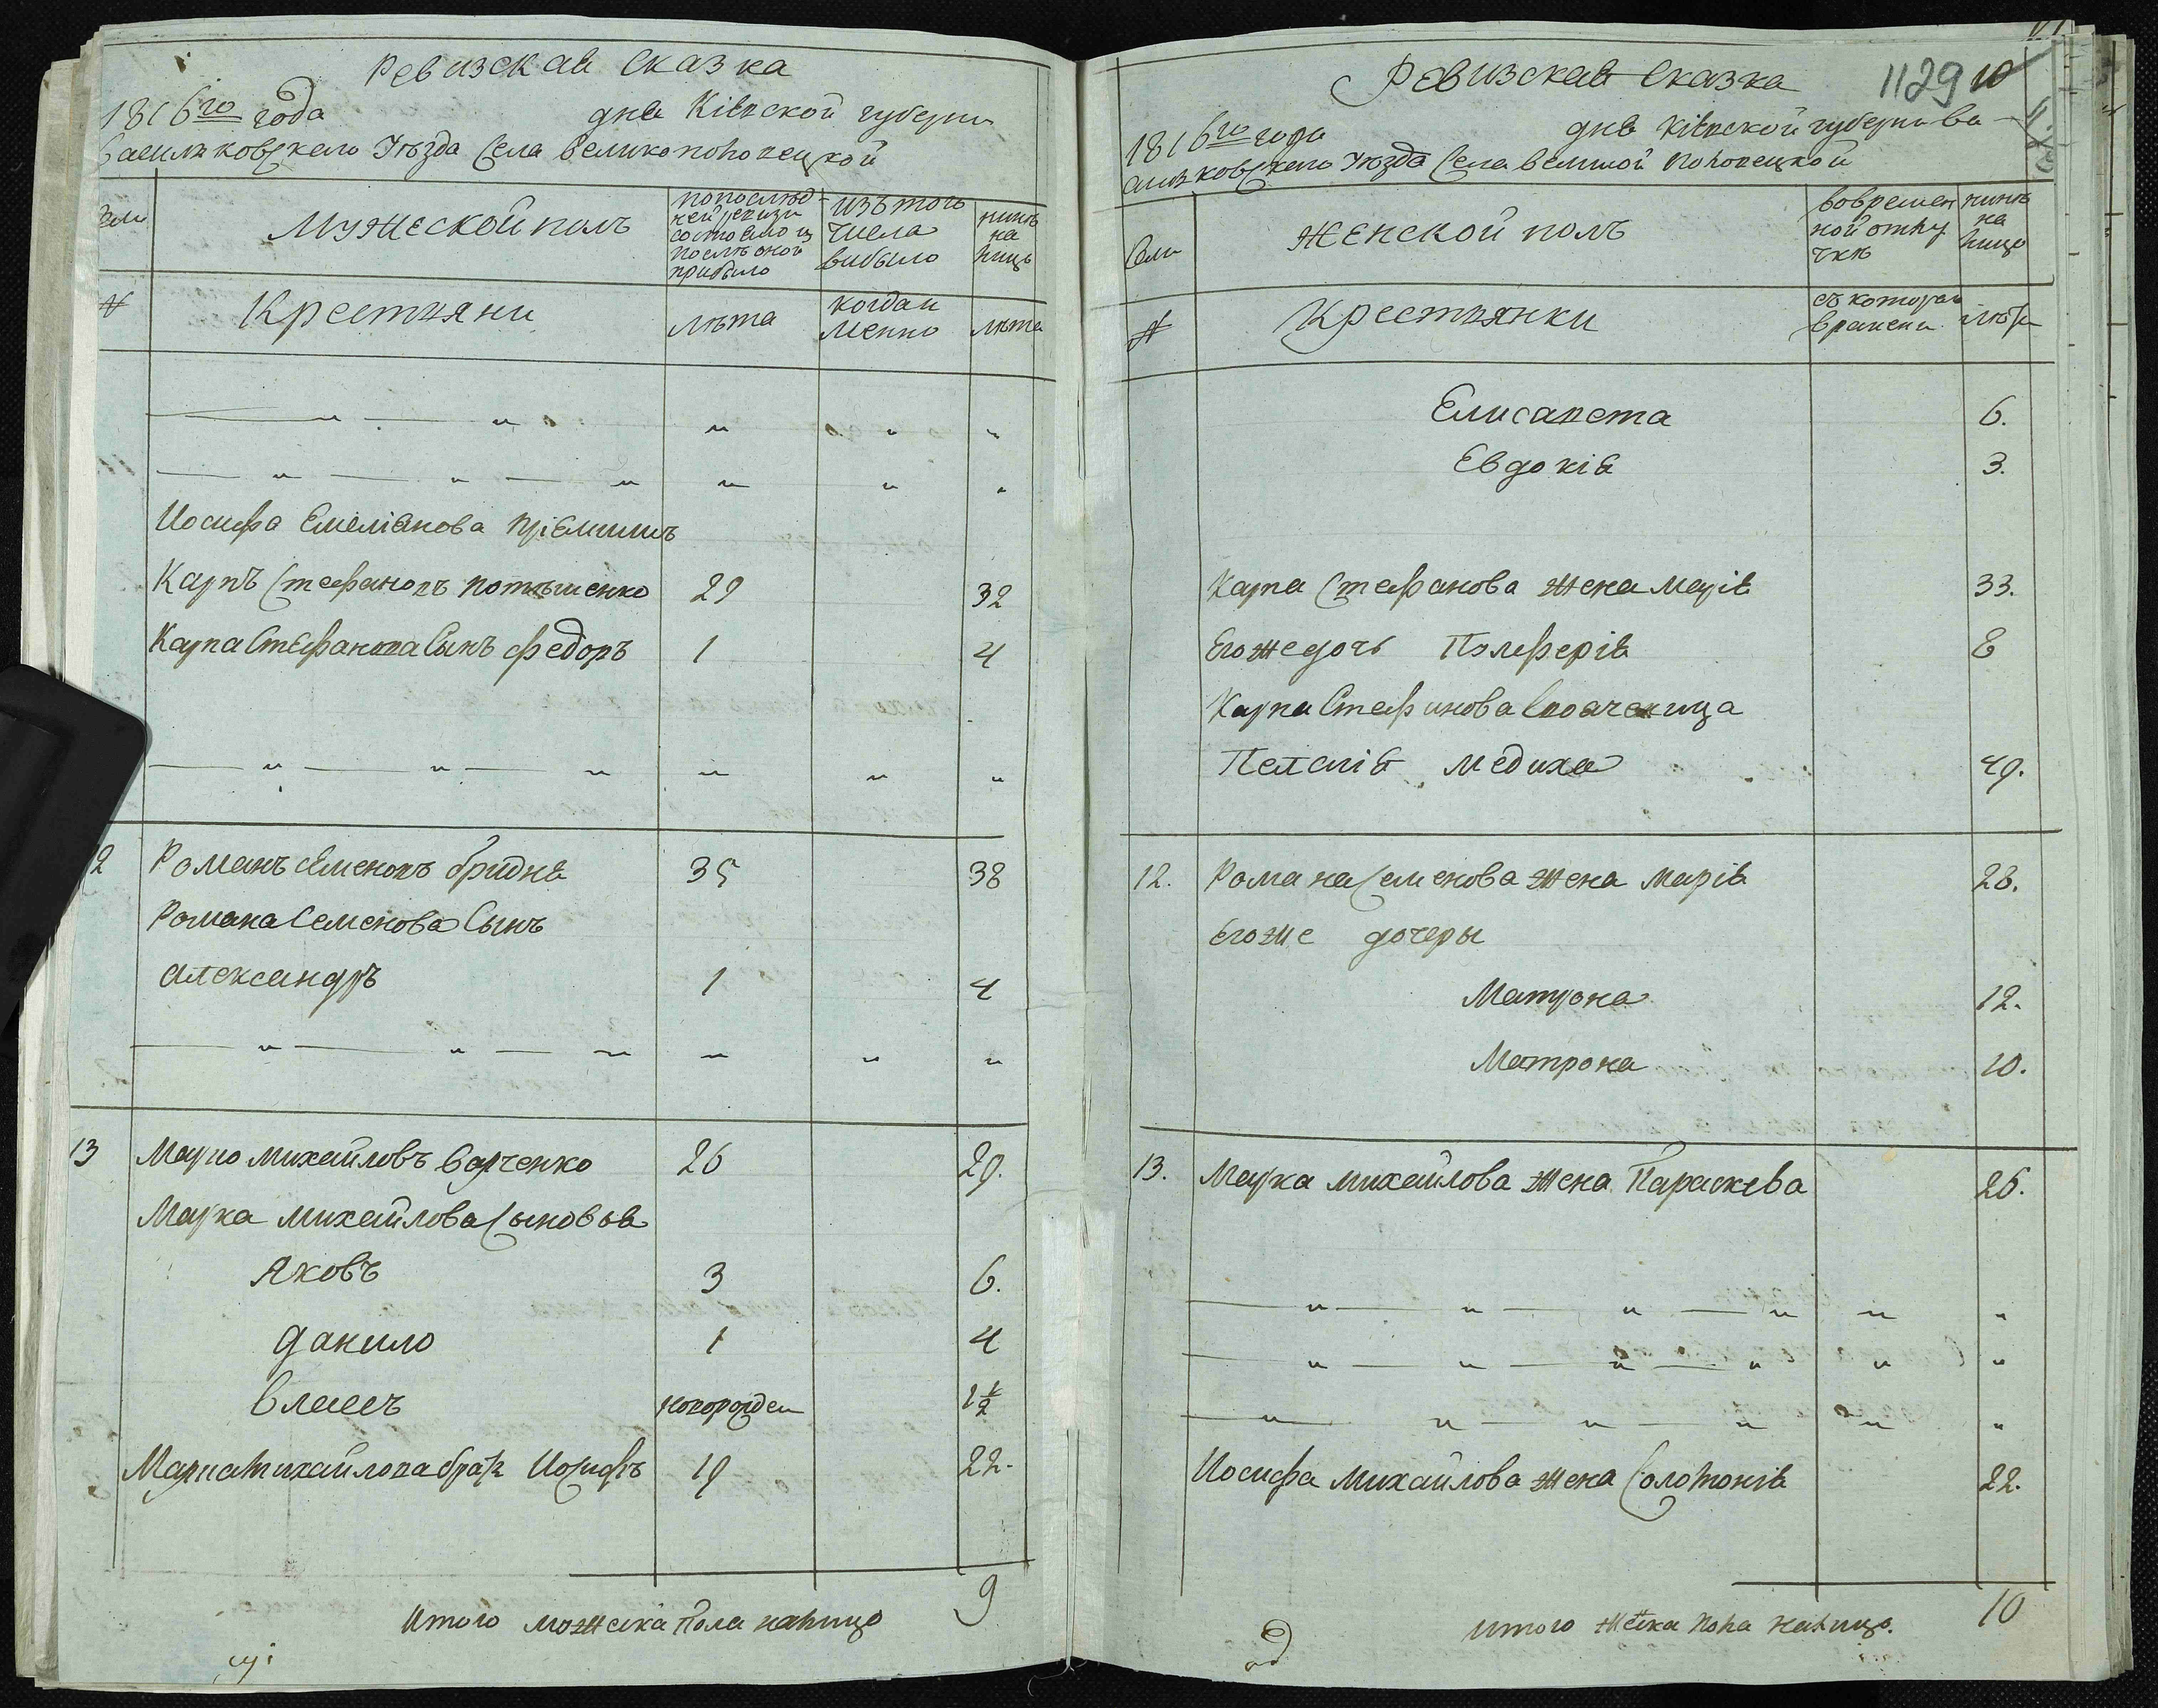 Ревизская сказка
1816го года дня Кіевской губерни
Василковского Уезда Села великополовецкой
Мужеской полъ
попослед-
ней ревизи
состояло и
после оной
прибыло
изъ того
числа
выбыло
нине
на
лицо
№
Крестяни
лета
когда и
менно
лета
Иосифа Емеліянова пріемишъ
Карпъ Стефановъ потапенко 29 32
Карпа Стефанова Сынъ федоръ 1 4
12 Романъ Семеновъ бридня 35 38
Романа Семенова Сынъ
александръ 1 4
13 Марко михайловъ Варченко 26 29.
Марка михайлова Сыновья
Яковъ 3 6.
данило 1 4
Власъ новорожден 1½
Марка михайлова братъ Иосифъ 19 22.
Итого можеска пола налицо 9
Ревизская Сказка
1129 10
1816го года дня Кіевской губерни ва-
силковского Уезда Села великой половецкой
Семи
женской полъ
вовремен
ной отлу
чке
нине
на
лицо
№
Крестянки
съ котораго
времени
лета
Елисавета 6.
Евдокія 3.
Карпа Стефанова жена марія 33.
Егоже дочь Гликерія 8
Карпа Стефанова Своячечица
Пелагія медиха 49.
12. Романа Семенова жена марія 28.
Егоже дочеры
Матрона 12.
Матрона 10.
13. Марка михайлова жена Параскева 26.
Иосифа михайлова жена Соломонія 22.
итого женска пола налицо. 10